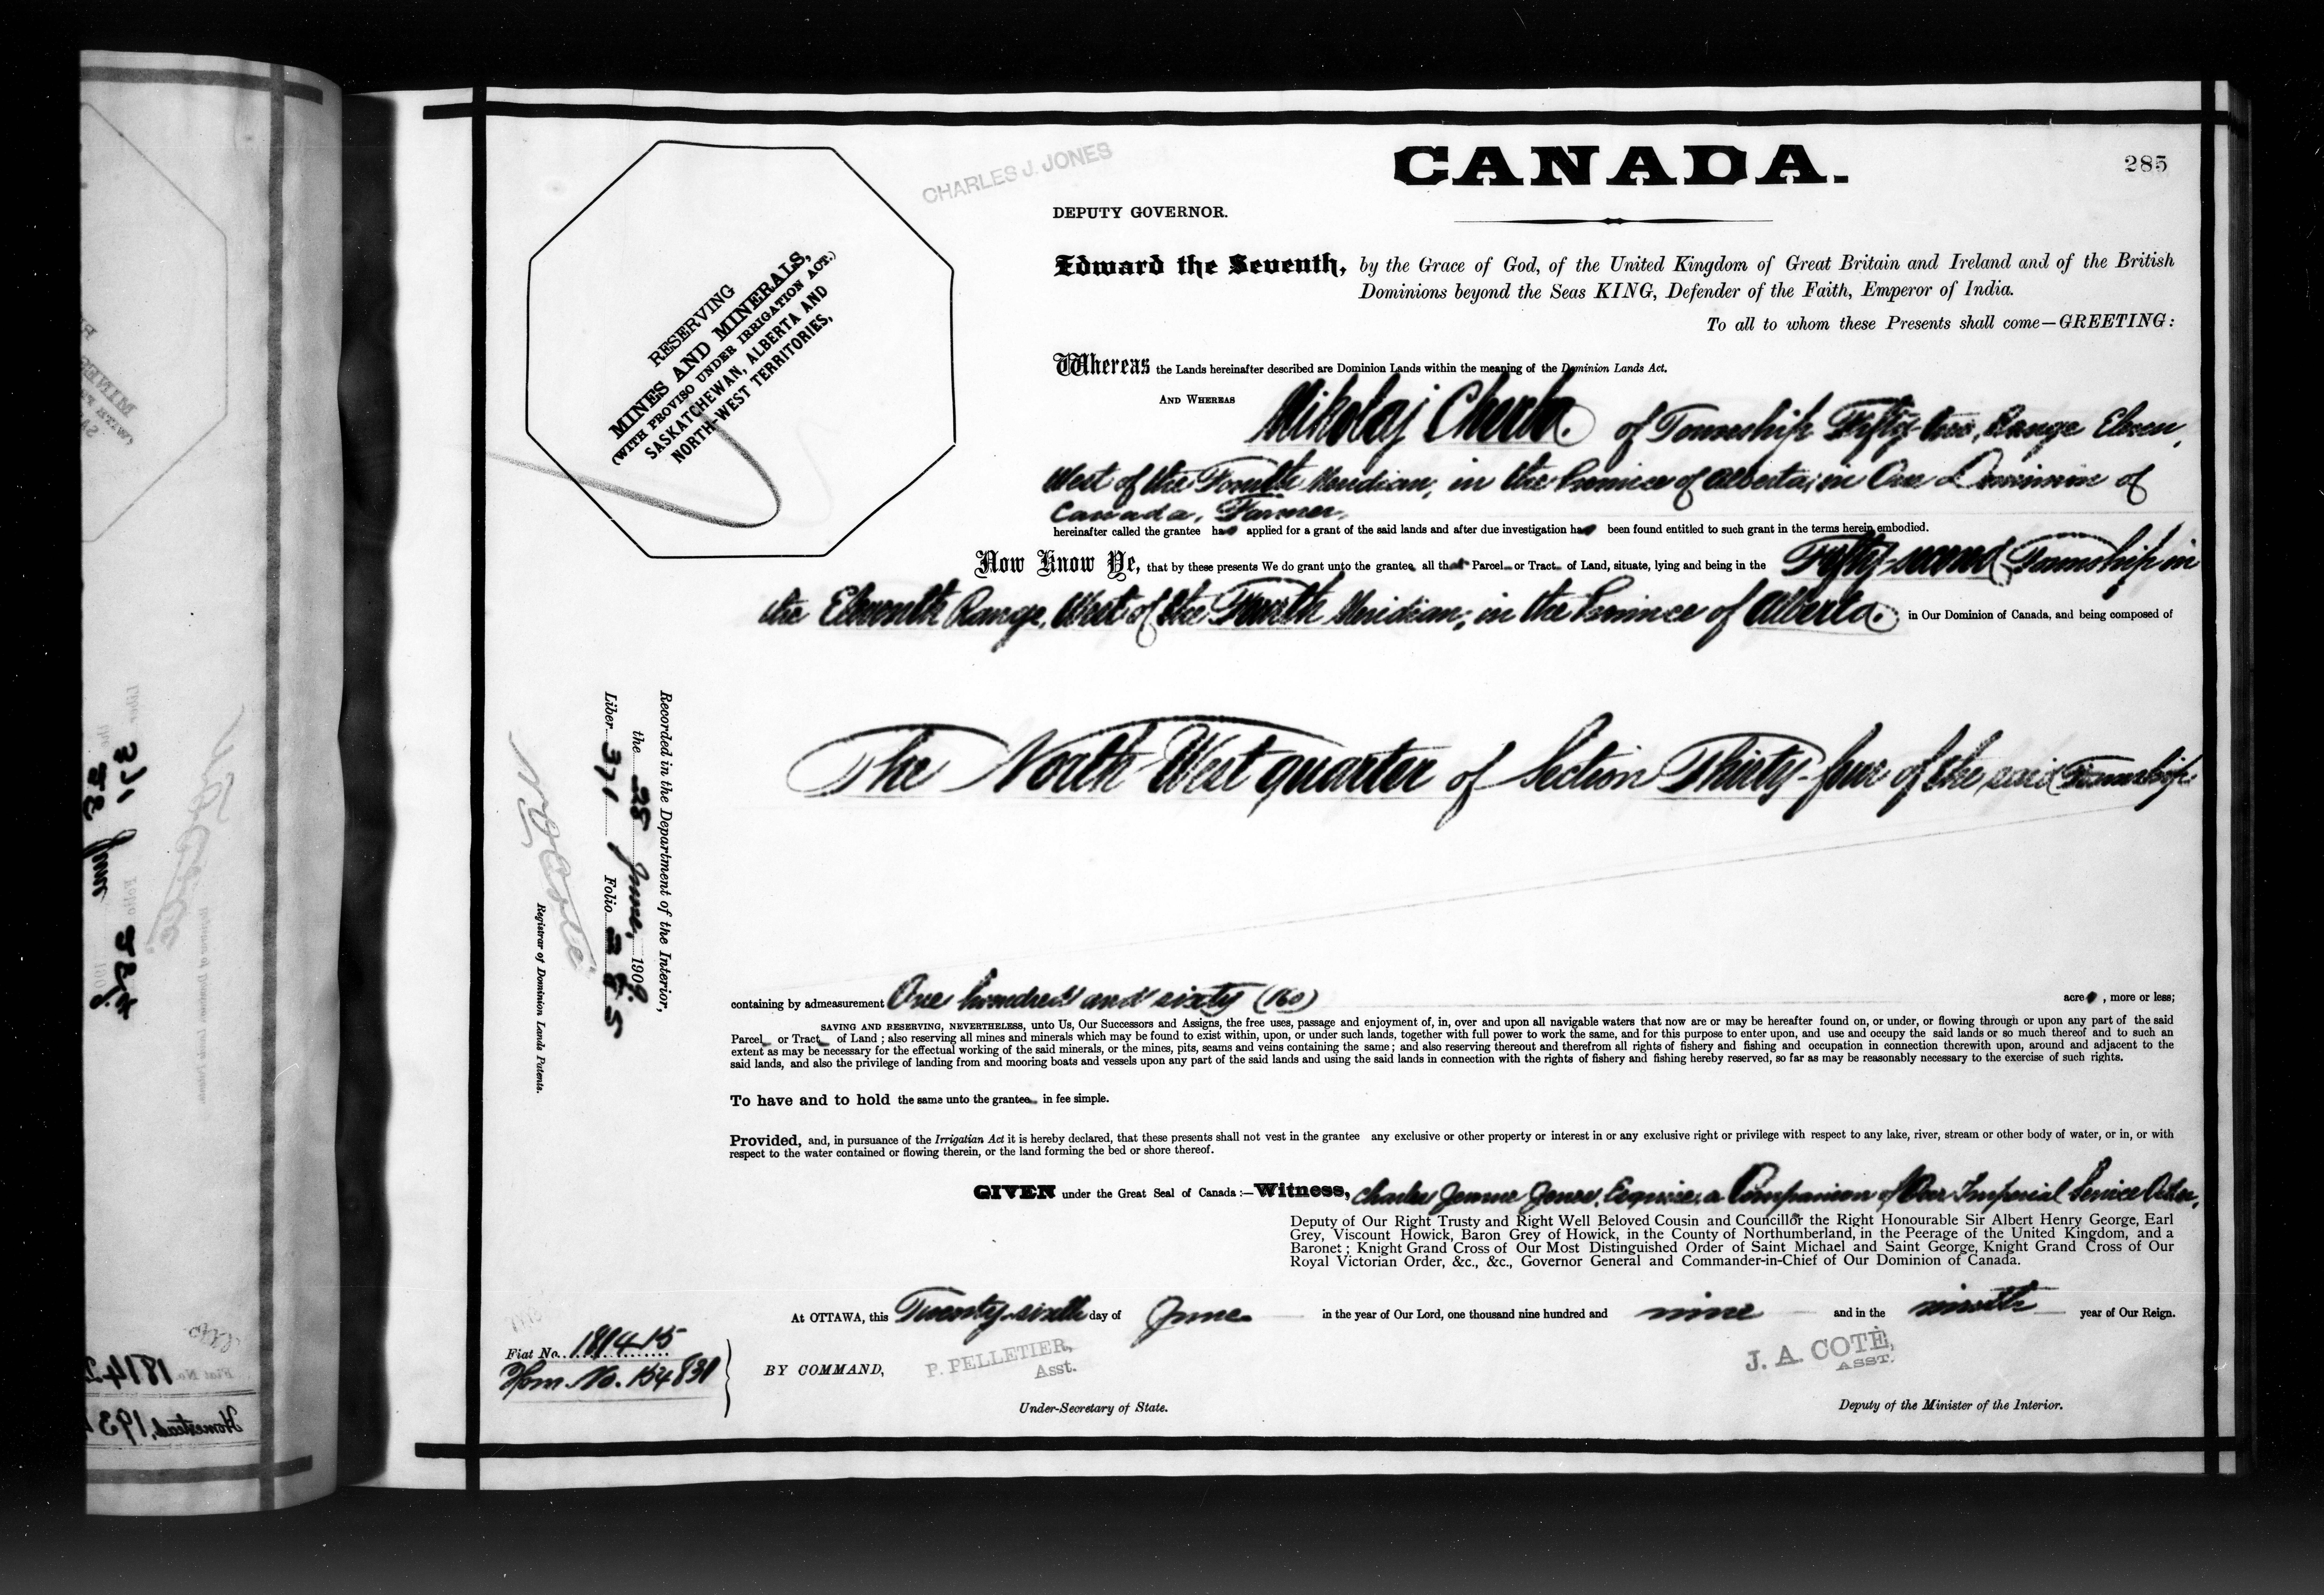 CANADA.
285
CHARLES J. JONES
DEPUTY GOVERNOR.
RESERVING
MINES AND MINERALS,
(WITH PROVISO UNDER IRRIGATION ACT.)
SASKATCHEWAN, ALBERTA AND
NORTH-WEST TERRITORIES,
Edward the Seventh, by the Grace of God, of the United Kingdom of Great Britain and Ireland and of the British
Dominions beyond the Seas KING, Defender of the Faith, Emperor of India.
To all to whom these Presents shall come—GREETING:
Whereas the Lands hereinafter described are Dominion Lands within the meaning of the Dominion Lands Act.
AND WHEREAS Mikolaj of Township Fifty-two, Range Eleven,
West of the Fourth Meridian, in the Province of Alberta, in Our Dominion of
Canada, Farmer,
hereinafter called the grantee ha applied for a grant of the said lands and after due investigation ha been found entitled to such grant in the terms herein embodied.
Now Know Ye, that by these presents We do grant unto the grantee all that Parcel or Tract of Land, situate, lying and being in the Fifty-second Township in
the Eleventh Range, West of the Fourth Meridian, in the Province of Alberta. in Our Dominion of Canada, and being composed of
The North West quarter of Section Thirty-four of the said Township.
Recorded in the Department of the Interior,
the 28 June, 1909
Liber 371 Folio 285
N O Coté
Registrar of Dominion Lands Patents.
containing by admeasurement One hundred and sixty (160) acre , more or less;
SAVING AND RESERVING, NEVERTHELESS, unto Us, Our Successors and Assigns, the free uses, passage and enjoyment of, in, over and upon all navigable waters that now are or may be hereafter found on, or under, or flowing through or upon any part of the said
Parcel or Tract of Land; also reserving all mines and minerals which may be found to exist within, upon, or under such lands, together with full power to work the same, and for this purpose to enter upon, and use and occupy the said lands or so much thereof and to such an
extent as may be necessary for the effectual working of the said minerals, or the mines, pits, seams and veins containing the same; and also reserving thereout and therefrom all rights of fishery and fishing and occupation in connection therewith upon, around and adjacent to the
said lands, and also the privilege of landing from and mooring boats and vessels upon any part of the said lands and using the said lands in connection with the rights of fishery and fishing hereby reserved, so far as may be reasonably necessary to the exercise of such rights.
To have and to hold the same unto the grantee in fee simple.
Provided, and, in pursuance of the Irrigatian Act it is hereby declared, that these presents shall not vest in the grantee any exclusive or other property or interest in or any exclusive right or privilege with respect to any lake, river, stream or other body of water, or in, or with
respect to the water contained or flowing therein, or the land forming the bed or shore thereof.
GIVEN under the Great Seal of Canada:—Witness, Charles Jones, Esquire, a Companion of Our Imperial Service Order,
Deputy of Our Right Trusty and Right Well Beloved Cousin and Councillor the Right Honourable Sir Albert Henry George, Earl
Grey, Viscount Howick, Baron Grey of Howick, in the County of Northumberland, in the Peerage of the United Kingdom, and a
Baronet; Knight Grand Cross of Our Most Distinguished Order of Saint Michael and Saint George, Knight Grand Cross of Our
Royal Victorian Order, &c., &c., Governor General and Commander-in-Chief of Our Dominion of Canada.
At OTTAWA, this Twenty-sixth day of June in the year of Our Lord, one thousand nine hundred and nine and in the ninth year of Our Reign.
Fiat No. 181415
Hom. No. 154831
BY COMMAND,
P. PELLETIER,
Asst.
Under-Secretary of State.
J. A. COTÉ,
ASST.
Deputy of the Minister of the Interior.